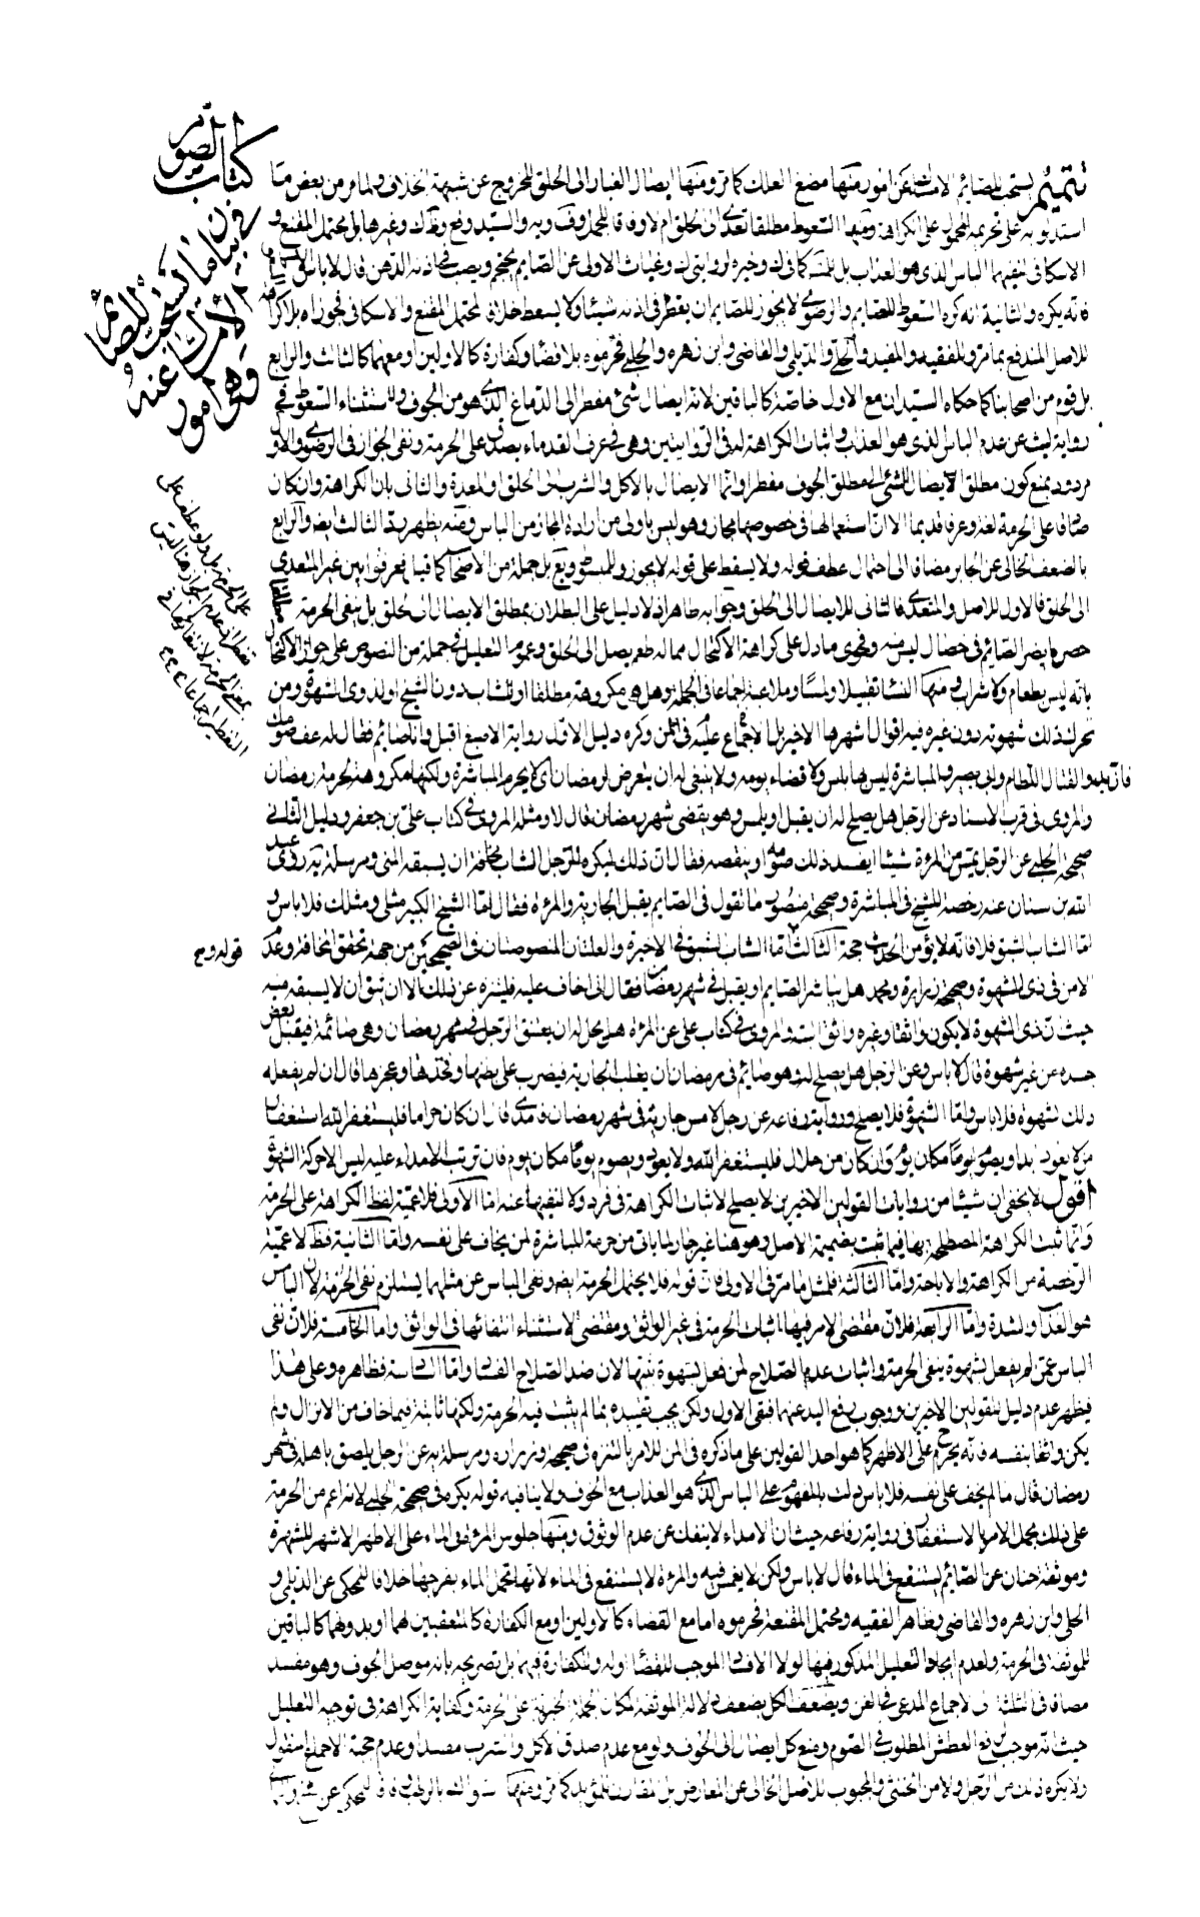 كتاب الصوم
في بيان ما يستحب للصائم
الإمساك عنه
وهي أمور
تتميم يستحب للصائم الامساك عن امور منها مضغ العلك كما مر ومنها ايصال الغبار الى الحلق للخروج عن شبهة الخلاف ولما مر من بعض ما
استدلوا به على تحريمه المحمول على الكراهة ومنها السعوط مطلقا تعدى الى الحلق ام لا وفاقا للجمل وف وير والسيد وفع ولك وغيرها بل محتمل المقنع و
الاسكافي لنفيهما الباس الذي هو العذاب بل للمشهور كما في ك وخيره لروايتي ليث وغياث الاولى عن الصايم يحتجم ويصب في اذنه الدهن قال لا باس الا السعوط
فانه يكره والثانية انه كره السعوط للصايم والرضوي لا يجوز للصايم ان يقطر في اذنه شيئا ولا يسعط خلافا لمحتمل المقنع والاسكافي فجوزاه بلا كراهة
للاصل المندفع بما مر وللفقيه والمفيد والحلبي والديلمي والقاضي وابن زهره والحلي فحرموه بلا قضاء وكفارة كالاولين او معهما كالثالث والرابع
بل قوم من اصحابنا كما حكاه السيدان مع الاول خاصة كالباقين لانه ايصال شئ مفطر الى الدماغ الذي هو من الجوف ولاستثناء السعوط في
رواية ليث عن عدم الباس الذي هو العذاب واثبات الكراهة له في الروايتين وهي في عرف القدماء يصدق على الحرمة ونفى الجواز في الرضوي والاول
مردود بمنع كون مطلق الايصال للشئ الى مطلق الجوف مفطرا وانما الايصال بالاكل والشرب الى الحلق والمعدة والثاني بان الكراهة وان كان
صادقا على الحرمة لغة وعرفا قديما الا ان استعمالها في خصوصها مجاز وهو ليس باولى من ارادة المجاز من الباس ومنه يظهر رد الثالث ايضا والرابع
بالضعف الخالي عن الجابر مضافا الى احتمال عطف قوله ولا يسقط على قوله لا يجوز وللمبسوط ويع بل جملة من الاصحاب كما قيل ففرقوا بين غير المتعدى
الى الحلق فالاول للاصل والمتعدى فالثاني للايصال الى الحلق وجوابه ظاهر اذ لا دليل على البطلان بمطلق الايصال الى الحلق بل ينفى الحرمة
حصر ما يضر الصائم في خصال ليس منه وفحوى ما دل على كراهة الاكتحال مما له طعم يصل الى الحلق وعموم التعليل في جملة من النصوص على جواز الاكتحال
بانه ليس بطعام ولا شراب ومنها النساء تقبيلا ولمسا وملاعبة اجماعا في الجملة وهل هي مكروهة مطلقا او للشاب دون الشيخ او لذوى الشهوة ومن
تحرك لذلك شهوته دون غيره فيه اقوال اشهرها الاخير بل الاجماع عليه في المنتهى وكره دليل الاول رواية الاصبغ اقبل وانا صائم فقال له عف صومك
فان بدو القتال اللطام وابي بصير والمباشرة ليس بها باس ولا قضاء يومه ولا ينبغي له ان يتعرض لرمضان اي لا يحرم المباشرة ولكنها مكروهة لحرمة رمضان
والمروى في قرب الاسناد عن الرجل هل يصلح له ان يقبل او يلمس وهو يقضى شهر رمضان قال لا ومثله المروى في كتاب علي بن جعفر ودليل الثاني
صحيحة الحلبي عن الرجل يمس من المرأة شيئا ايفسد ذلك صومه او ينقصه فقال ان ذلك ليكره للرجل الشاب مخافة ان يسبقه المنى ومرسلة يه روى عبد
الله بن سنان عنه رخصة للشيخ في المباشرة وصحيحة منصور ما تقول في الصايم يقبل الجارية والمرأة فقال اما الشيخ الكبير مثلى ومثلك فلا باس و
اما الشاب الشبق فلا فانه لا يؤمن الحدث حجة الثالث اما الشاب الشبق في الاخيرة والعلتان المنصوصتان في الصحيحين من جهة تحقق المخافة وعدم
الامن في ذى الشهوة وصحيحة زرارة ومحمد هل يباشر الصايم او يقبل في شهر رمضان فقال انى اخاف عليه فليتنزه عن ذلك الا ان يثق ان لا يسبقه منيه
حيث ان ذى الشهوة لا يكون واثقا وغيره واثق البتة والمروى في كتاب علي عن المرأة هل يحل لها ان يعتنق الرجل في شهر رمضان وهي صائمة فيقبل بعض
جسده من غير شهوة قال لا باس وعن الرجل هل يصلح له وهو صايم في رمضان ان يقلب الجارية فيضرب على بطنها وفخذها وعجزها قال ان لم يفعله
ذلك لشهوة فلا باس واما الشهوة فلا يصلح ورواية رفاعه عن رجل لامس جارية في شهر رمضان فامذى قال ان كان حراما فليستغفر الله استغفار
من لا يعود ابدا ويصوم يوما مكان يوم وان كان من حلال فليستغفر الله ولا يعود ويصوم يوما مكان يوم فان ترتب الامذاء عليه ليس الا حركة الشهوة
اقول لا يخفى ان شيئا من روايات القولين الاخيرين لا يصلح لاثبات الكراهة في فرد ولا لنفيها عنه اما الاولى فلاعمية لفظ الكراهة على الحرمة
وانما ثبت الكراهة المصطلحة بها فيما ثبت بضميمة الاصل وهو هنا غير جار لما ياتى من حرمة المباشرة لمن يخاف على نفسه واما الثانية فظ لاعمية
الرخصة من الكراهة والاباحة واما الثالثة فلمثل ما مر في الاولى فان قوله فلا يحتمل الحرمة ايضا ونفى الباس عن مثلهما يستلزم نفى الحرمة لان الباس
هو العذاب والشدة واما الرابعة فلان مقتضى الامر فيها اثبات الحرمة في غير الواثق ومقتضى الاستثناء انتفائها في الواثق واما الخامسة فلان نفى
الباس عمن لم يفعل لشهوة ينفى الحرمة واثبات عدم الصلاح لمن فعل لشهوة يثبتها لان ضد الصلاح الفساد واما السادسة فظاهره وعلى هذا
فيظهر عدم دليل للقولين الاخيرين ووجوب رفع اليد عنهما فبقى الاول ولكن يجب تقييده بما لم يثبت فيه الحرمة ولكنها ثابتة فيما خاف من الانزال ولم
يكن واثقا بنفسه فانه يحرم ح على الاظهر كما هو احد القولين على ما ذكره في المن للامر بالتنزه في صحيحة زرارة ومرسلة يه عن الرجل يلصق باهله في شهر
رمضان قال ما لم يخف على نفسه فلا باس دلت بالمفهوم على الباس الذي هو العذاب مع الخوف ولا ينافيه قوله يكره في صحيحة الحلبي لانه اعم من الحرمة
على ذلك يحمل الامر بالاستغفار في رواية رفاعه حيث ان الامذاء لا ينفك عن عدم الوثوق ومنها جلوس المرأة في الماء على الاظهر الاشهر للشهرة
وموثقة حنان عن الصائم يستنقع في الماء قال لا باس ولكن لا يغمس فيه والمرأة لا يستنقع في الماء لانها تحمل الماء بفرجها خلافا للمحكى عن الديلمي و
الحلبي وابن زهره والقاضي وظاهر الفقيه ومحتمل المقنعة فحرموه اما مع القضاء كالاولين او مع الكفارة كالمتعقبين لهما او بدونهما كالباقين
للموثقة في الحرمة ولعدم ايجاد التعليل المذكور فيها لولا الافساد الموجب للقضاء وله وللكفارة فيهما بل تصريحه بانه موصل الجوف وهو مفسد
مضافا في الثلثة الى الاجماع المدعى في الغنية ويضعف الكل بضعف دلالة الموثقة لمكان الجملة الخبرية على الحرمة وكفاية الكراهة في توجيه التعليل
حيث انه موجب لرفع العطش المطلوب في الصوم ومنع كل ايصال الى الجوف ولو مع عدم صدق الاكل والشرب مفسدا وعدم حجية الاجماع المنقول
ولا يكره ذلك من الرجل ولا من الخنثى والمجبوب للاصل الخالى عن المعارض بل مقارن للمؤيد كما مر ومنها السواك بالرطب وفاقا للمحكى عن
قوله وح